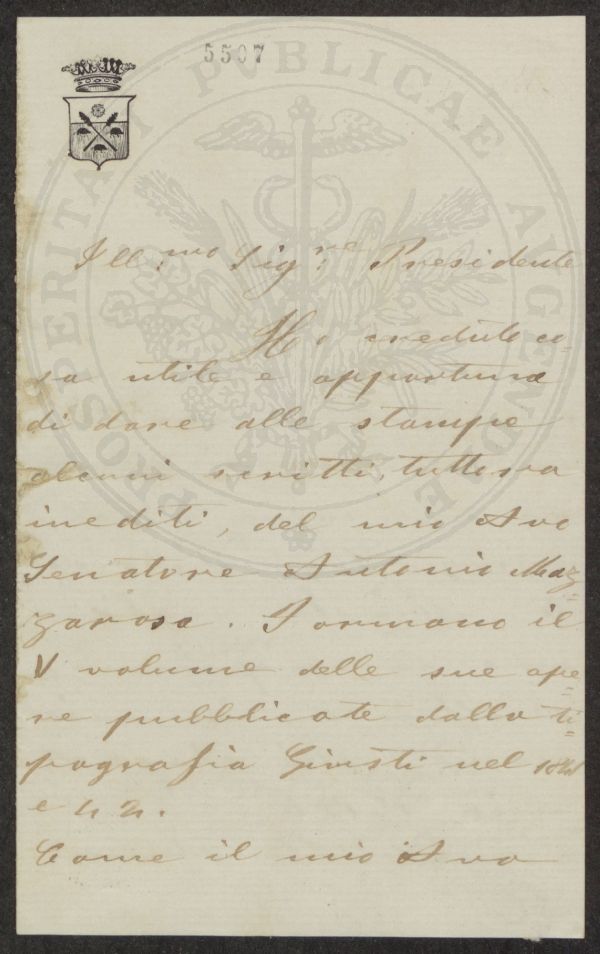 5507
PROSPERITATI PVBLICAE AVGENDAE
Ill:mo Sig:re Presidente
Ho creduto co-
sa utile e opportuna
di dare alle stampe
alcuni scritti, tuttora
inediti, del mio Avo
Senatore Antonio Maz-
zarosa. Formano il
V volume delle sue ope-
re pubblicate dalla ti-
pografia Giusti nel
e 42.
Come il mio Avo